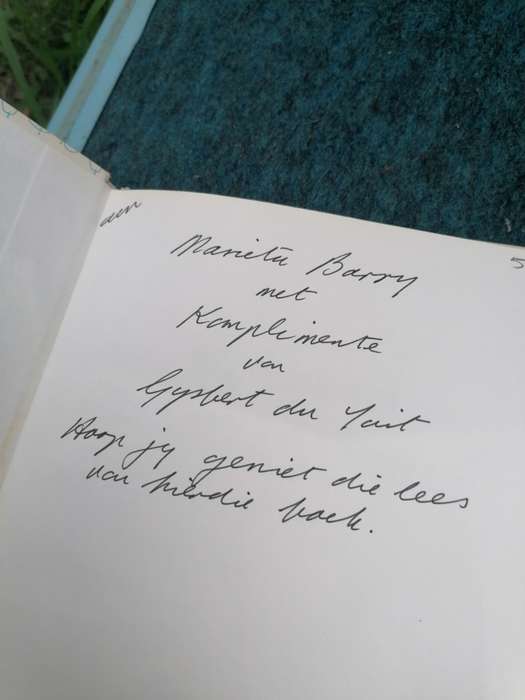 aan
Marietu Barry
met
Komplimente
van
Gysbert du Toit
Hoop jy geniet die lees
van hierdie boek.
5